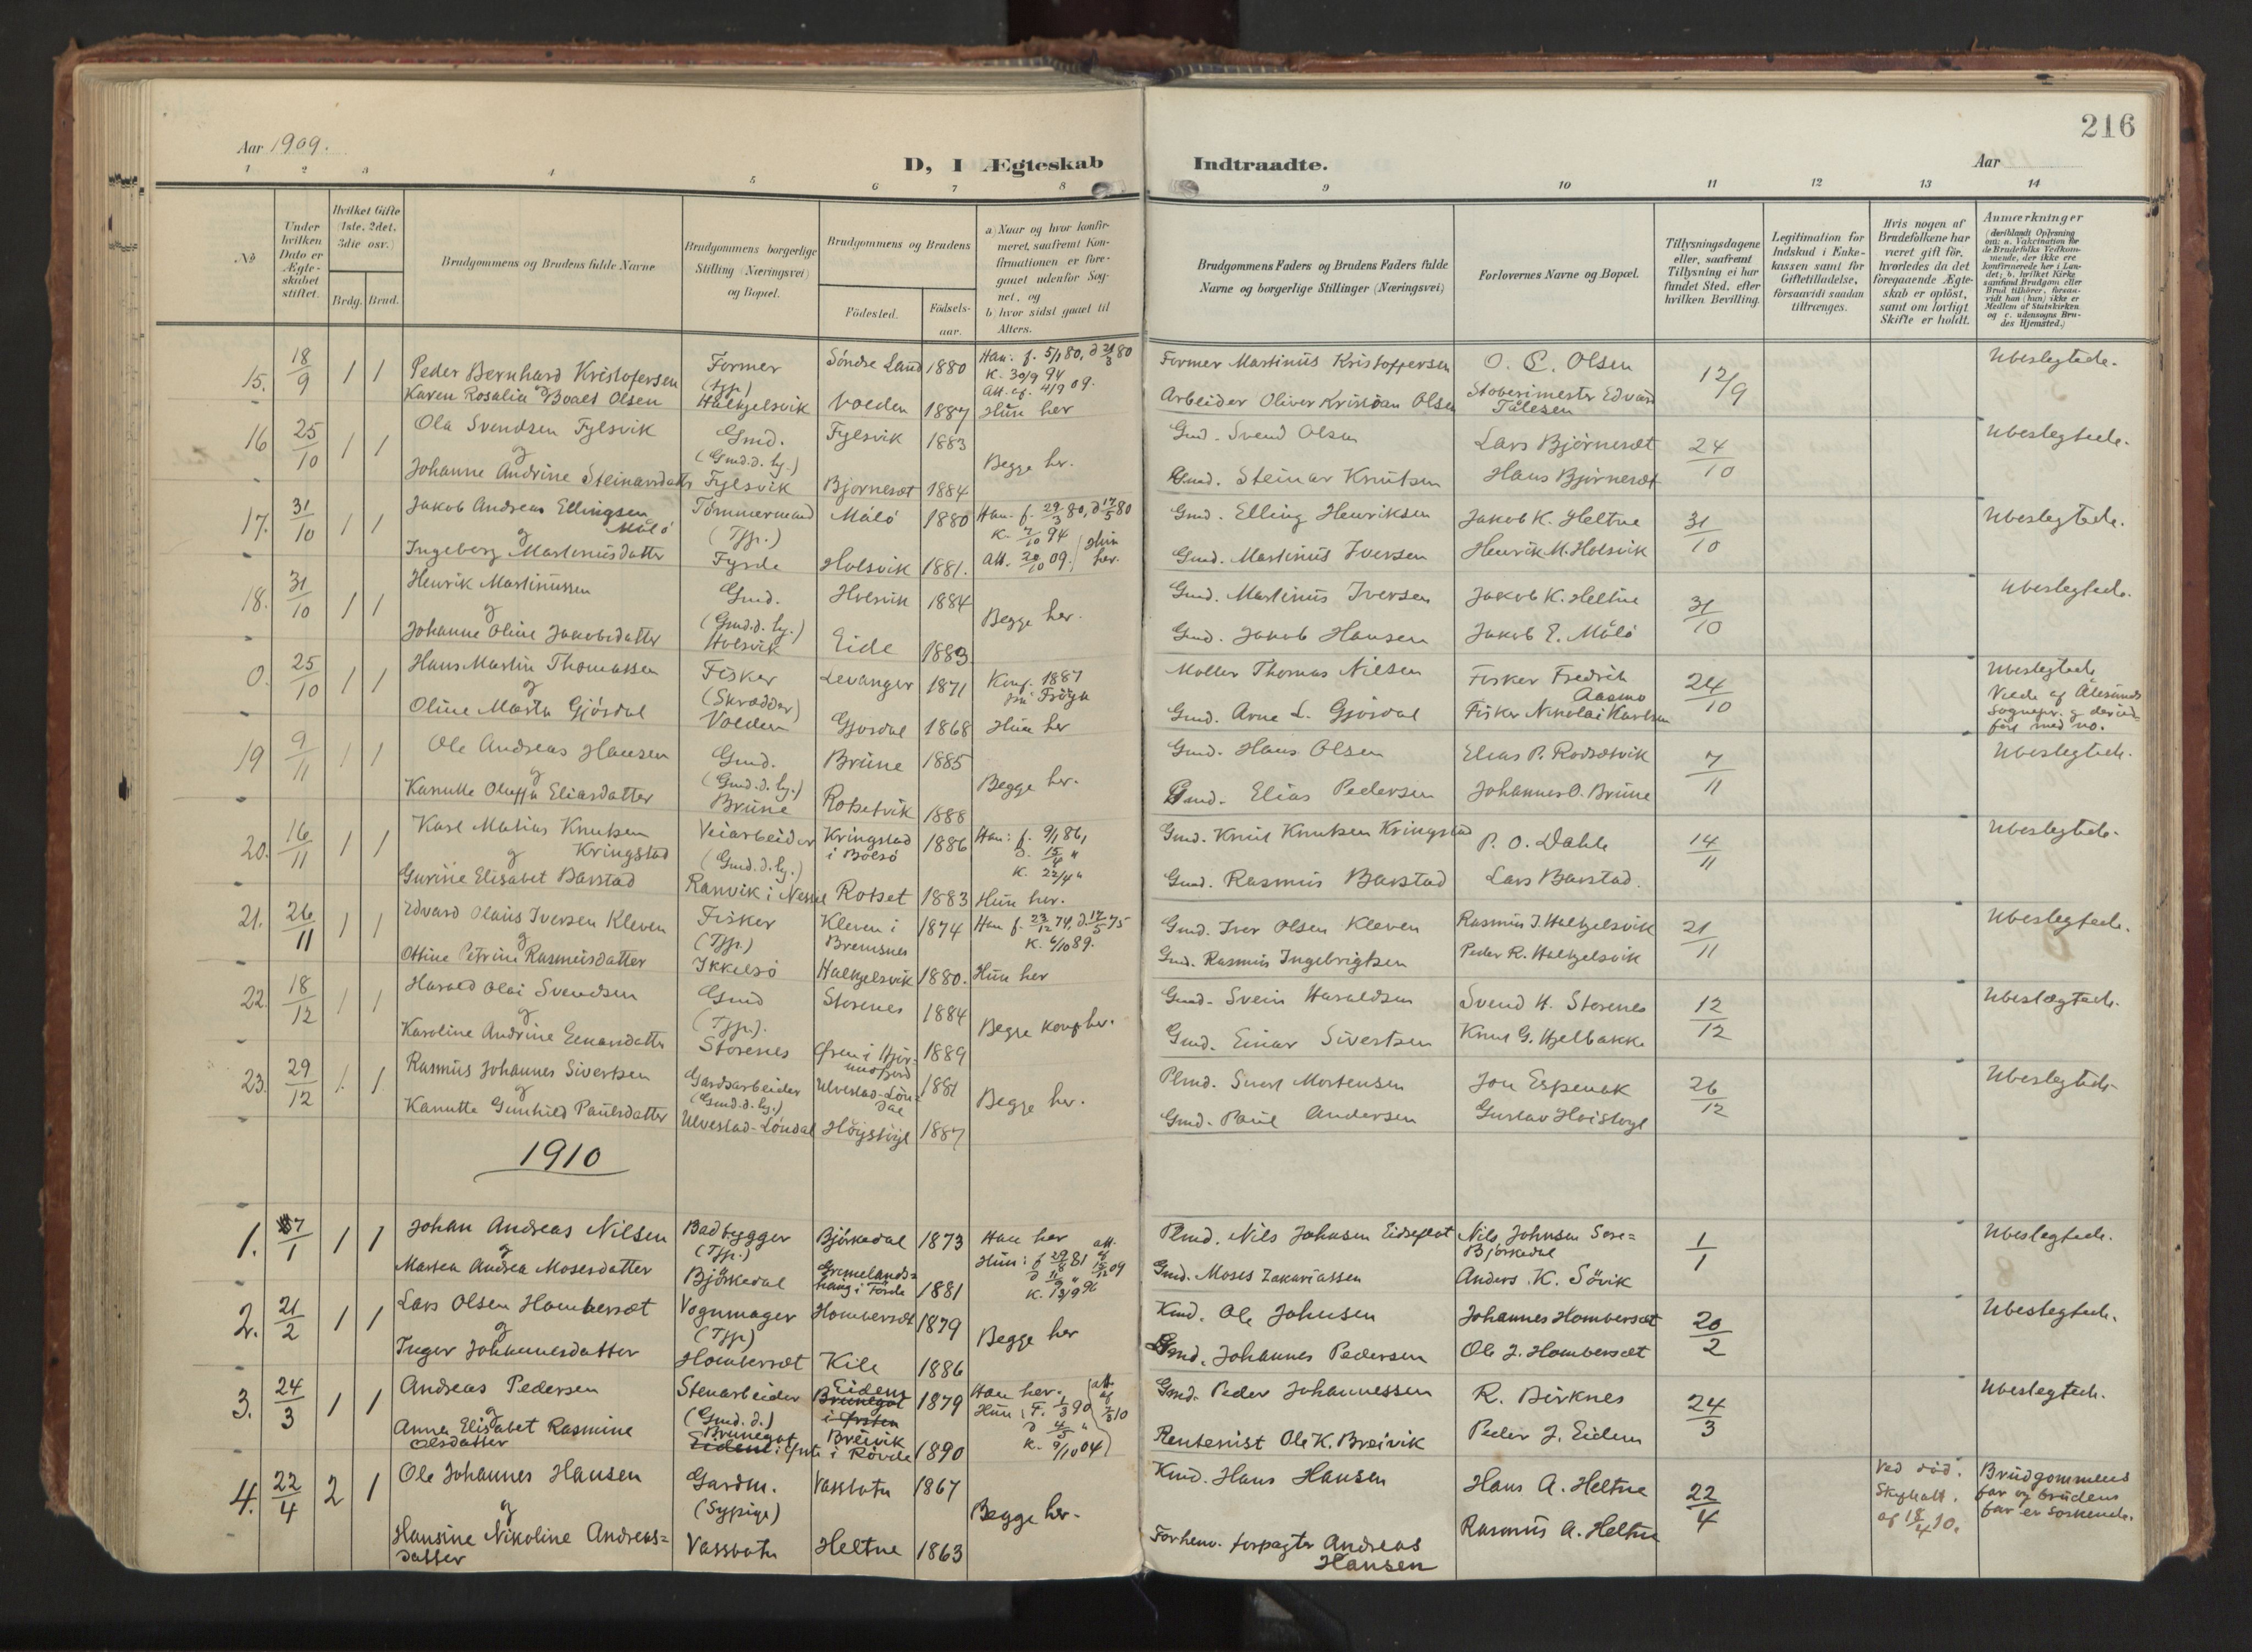 216
Aar 1909.
D, I Ægteskab Indtraadte.
Aar
1 2 3 4 5 6 7 8 9 10 11 12 13 14
No
Under hvilken Dato er Ægteskabet stiftet.
Hvilket Gifte (1ste, 2det, 3die osv.)
Brdg. Brud.
Brudgommens og Brudens fulde Navne
Brudgommens borgerlige Stilling (Næringsvei) og Bopæl.
Brudgommens og Brudens
Fødested.
Fødselsaar.
a) Naar og hvor konfirmeret, saafremt Konfirmationen er foregaaet udenfor Sognet, og
b) hvor sidst gaaet til Alters.
Brudgommens Faders og Brudens Faders fulde Navne og borgerlige Stillinger (Næringsvei)
Forlovernes Navne og Bopæl.
Tillysningsdagene eller, saafremt Tillysning ei har fundet Sted, efter hvilken Bevilling.
Legitimation for Indskud i Enkekassen samt for Giftetilladelse, forsaavidt saadan tiltrænges.
Hvis nogen af Brudefolkene har været gift før, hvorledes da det foregaaende Ægteskab er opløst, samt om lovligt Skifte er holdt.
Anmærkninger
(deriblandt Oplysning om: a. Vakcination for de Brudefolks Vedkommende, der ikke ere konfirmerede her i Landet; b. hvilket Kirkesamfund Brudgom eller Brud tilhører, forsaavidt han (hun) ikke er Medlem af Statskirken og c. udensogns Brudes Hjemsted.)
15. 18/9 1 1 Peder Bernhard Kristofersen Former Söndre Land 1880 Han: f. 5/1 80, d 21/3 80 Former Martinus Kristoffersen O. C. Olsen 12/9 Ubeslegtede.
(Tjp.) K. 30/9 94
Att. af. 4/9 09.
Karen Rosalia Boalt Olsen Halkjelsvik Volden 1887 Hun her Arbeider Oliver Kristian Olsen Støberimester Edvard Tålesen
16 25/10 1 1 Ola Svendsen Fylsvik Gmd. Fylsvik 1883 Gmd. Svend Olsen Lars Bjørneset 24/10 Ubeslegtede.
og (Gmd.d. hj.) Begge her.
Johanne Andrine Steinarsdatter Fylsvik Bjorneset 1884 Gmd. Steinar Knutsen Hans Bjørneset
17. 31/10 1 1 Jakob Andreas Ellingsen Målö Tömmermand Målö 1880 Han. f. 29/3 80, d 17/5 80 Gmd. Elling Henriksen Jakob K. Heltne 31/10 Ubeslegtede.
og (Tjp.) K. 2/10 94
Ingeborg Martinusdatter Fyrde Holsvik 1881. Att. 20/10 09. Hun her. Gmd. Martinus Iversen Henrik M. Holsvik
18. 31/10 1 1 Henrik Martinussen Gmd. Holsvik 1884 Gmd. Martinus Iversen Jakob K. Heltne 31/10 Ubeslegtede.
og (Gmd.d. hj.) Begge her.
Johanne Oline Jakobsdatter Holsvik Eide 1883 Gmd. Jakob Hansen Jakob E. Målö
0. 25/10 1 1 Hans Martin Thomassen Fisker Levanger 1871 Konf. 1887 på Frögn Møller Thomas Nilsen Fisker Fredrik Aasmo 24/10 Ubeslegtede
og (Skrædder) Viede af Ålesunds Sognepr. og der indført med no.
Oline Marta Gjösdal Volden Gjøsdal 1868 Hun her Gmd. Arne L. Gjøsdal Fisker Nikolai Karlsen
19 9/11 1 1 Ole Andreas Hansen Gmd. Brune 1885 Gmd. Hans Olsen Elias P. Rodsetvik 7/11 Ubeslegtede.
og (Gmd.d. hj.) Begge her.
Kanutte Oluffa Eliasdatter Brune Rotsetvik 1888 Gmd. Elias Pedersen Johannes O. Brune
20. 16/11 1 1 Karl Matias Knutsen Kringstad Veiarbeider Kringstad i Bolsö 1886 Han: f. 9/1 86, Gmd. Knut Knutsen Kringstad P. O. Dahle 14/11 Ubeslegtede.
og (Gmd.d. hj.) d. 15/4 "
K. 22/4 "
Gurine Elisabet Barstad Ranvik i Nesset Rotset 1883 Hun her. Gmd. Rasmus Barstad Lars Barstad.
21. 26/11 1 1 Edvard Olaus Iversen Kleven Fisker Kleven i Bremsnes 1874 Han f. 23/12 74, d. 17/5 75 Gmd. Iver Olsen Kleven Rasmus I. Halkjelsvik 21/11 Ubeslegtede.
og (Tjp.) K. 6/10 89.
Ottine Petrine Rasmusdatter Ikkelsö Halkjelsvik 1880. Hun her Gmd. Rasmus Ingebrigtsen Peder R. Halkjelsvik
22. 18/12 1 1 Harald Olai Svendsen Gmd Storenes 1884 Gmd. Svein Haraldsen Svend H. Storenes 12/12 Ubeslægtede.
og (Tjp.). Begge konf her.
Karoline Andrine Einarsdatter Storenes Øren i Hjörundfjord 1889 Gmd. Einar Sivertsen Knut G. Hjelbakke
23. 29/12 1. 1 Rasmus Johannes Sivertsen Gardsarbeider Ulvestad-Löndal 1881 Plmd. Sivert Mortensen Jon Espenak 26/12 Ubeslegtede
og (Gmd.d. hj.) Begge her.
Kanutte Gunhild Paulsdatter Ulvestad-Løndal Höystöyl 1887 Gmd. Paul Andersen Gustav Hoistoyl
1910
1. 7/1 1 1 Johan Andreas Nilsen Badbygger Björkedal 1873 Han her Plmd. Nils Johnsen Eidseflot Nils Johnsen Sore=Bjørkedal 1/1 Ubeslegtede.
og (Tjp.) Hun: f 29/8 81 att. af 15/12 09
Martea Andrea Mosesdatter Björkedal Gremelandshaug i Förde 1881 d 11/9 " K. 13/9 96 Gmd. Moses Zakariassen Anders. K. Sövik
2. 21/2 1 1 Lars Olsen Homberset Vognmager Homberset 1879 Kmd. Ole Johnsen Johannes Homberset 20/2 Ubeslegtede.
og (Tjp) Begge her
Inger Johannesdatter Homberset Kile 1886 Gmd. Johannes Pedersen Ole J. Homberset
3. 24/3 1 1 Andreas Pedersen Stenarbeider Eidem Brunegot i Ørsten 1879 Han her. Gmd. Peder Johannessen R. Birknes 24/3 Ubeslegtede.
og (Gmd. d.) Hun: F. 1/3 90 att. af 7/3 10
Anna Elisabet Rasmine Olsdatter Brunegot Eidem Breivik i Rövde 1890 d 4/5 " K. 9/10 04 Rentenist Ole K. Breivik Peder J. Eidem
4. 22/4 2 1 Ole Johannes Hansen Gardm. Vassbotn 1867 Kmd. Hans Hansen Hans A. Heltne 22/4 Ved död. Skiftatt. af 18/4 10. Brudgommens far og brudens far er søskende.
og (Sypige) Begge her.
Hansine Nikoline Andreas=datter Vassbotn Heltne 1863 Forhenv. forpagter Andreas Hansen Rasmus A. Heltne